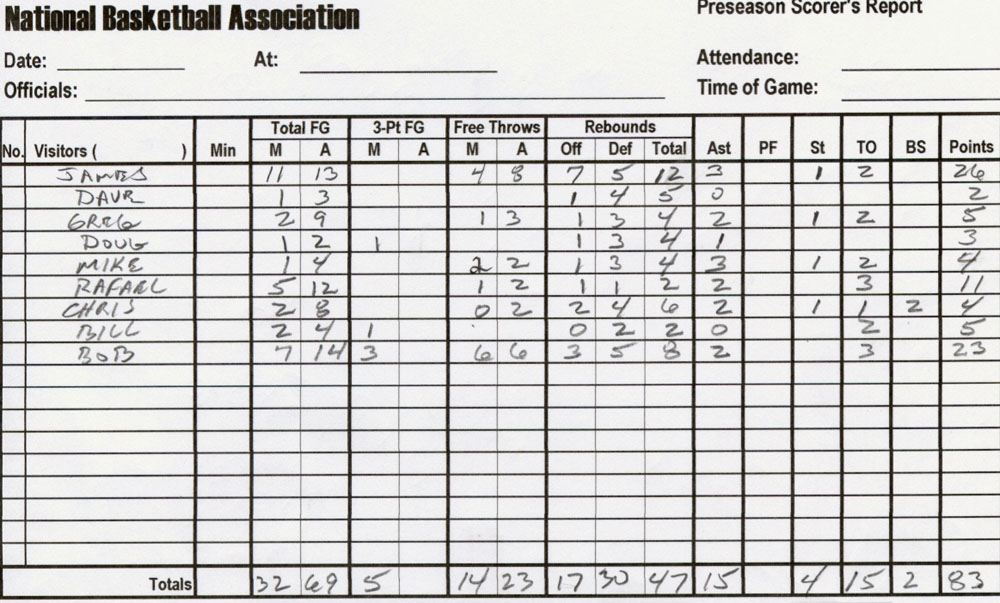 National Basketball Association Preseason Scorer's Report
Date: At: Attendance:
Officials: Time of Game:
Total FG 3-Pt FG Free Throws Rebounds
No. Visitors ( ) Min M A M A M A Off Def Total Ast PF St TO BS Points
JAMES 11 13 4 8 7 5 12 3 1 2 26
DAVE 1 3 1 4 5 0 2
GREG 2 9 1 3 1 3 4 2 1 2 5
DOUG 1 2 1 1 3 4 1 3
MIKE 1 4 2 2 1 3 4 3 1 2 4
RAFAEL 5 12 1 2 1 1 2 2 3 11
CHRIS 2 8 0 2 2 4 6 2 1 1 2 4
BILL 2 4 1 0 2 2 0 2 5
BOB 7 14 3 6 6 3 5 8 2 3 23
Totals 32 69 5 14 23 17 30 47 15 4 15 2 83